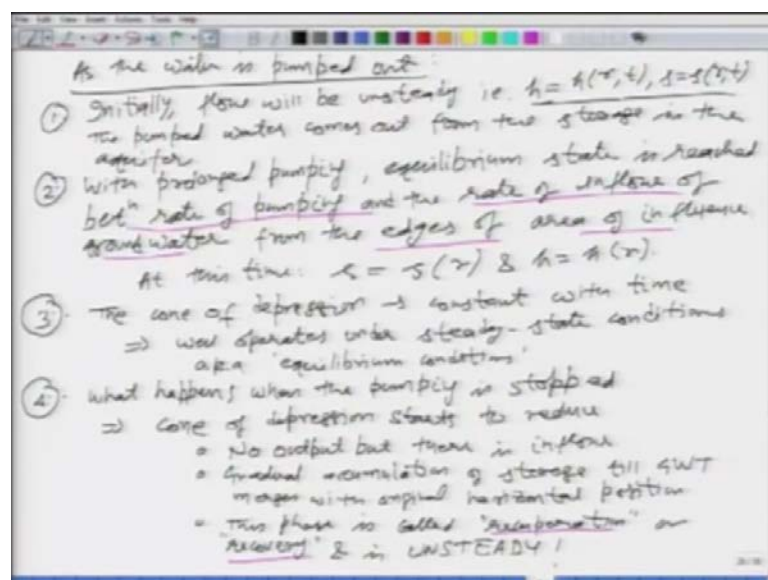 As the water is pumped out:
① Initially, flow will be unsteady i.e. h = h(r,t), s = s(r,t)
The pumped water comes out from the storage in the
aquifer.
② With prolonged pumping, equilibrium state is reached
betⁿ rate of pumping and the rate of inflow of
ground water from the edges of area of influence
At this time: s = s(r) & h = h(r).
③ The cone of depression → constant with time
⇒ well operates under steady-state conditions
a.k.a "equilibrium conditions"
④ What happens when the pumping is stopped
⇒ cone of depression starts to reduce
• No output but there is inflow
• Gradual accumulation of storage till GWT
merges with original horizontal position
• This phase is called "recuperation" or
"recovery" & is UNSTEADY!